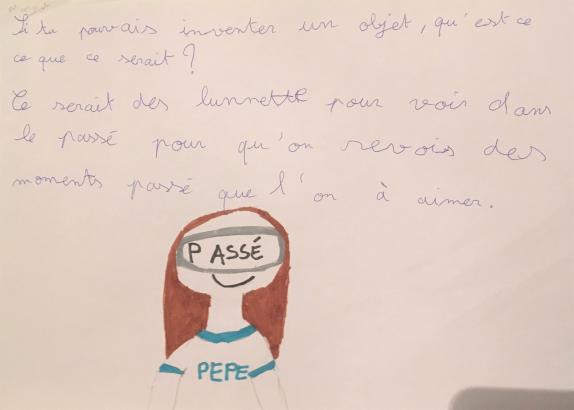 Si tu pouvais inventer un objet, qu'est ce
ce que ce serait ?
Ce serait des lunnette pour voir dans
le passé pour qu'on revois des
moments passé que l'on à aimer.
PASSÉ
PEPE